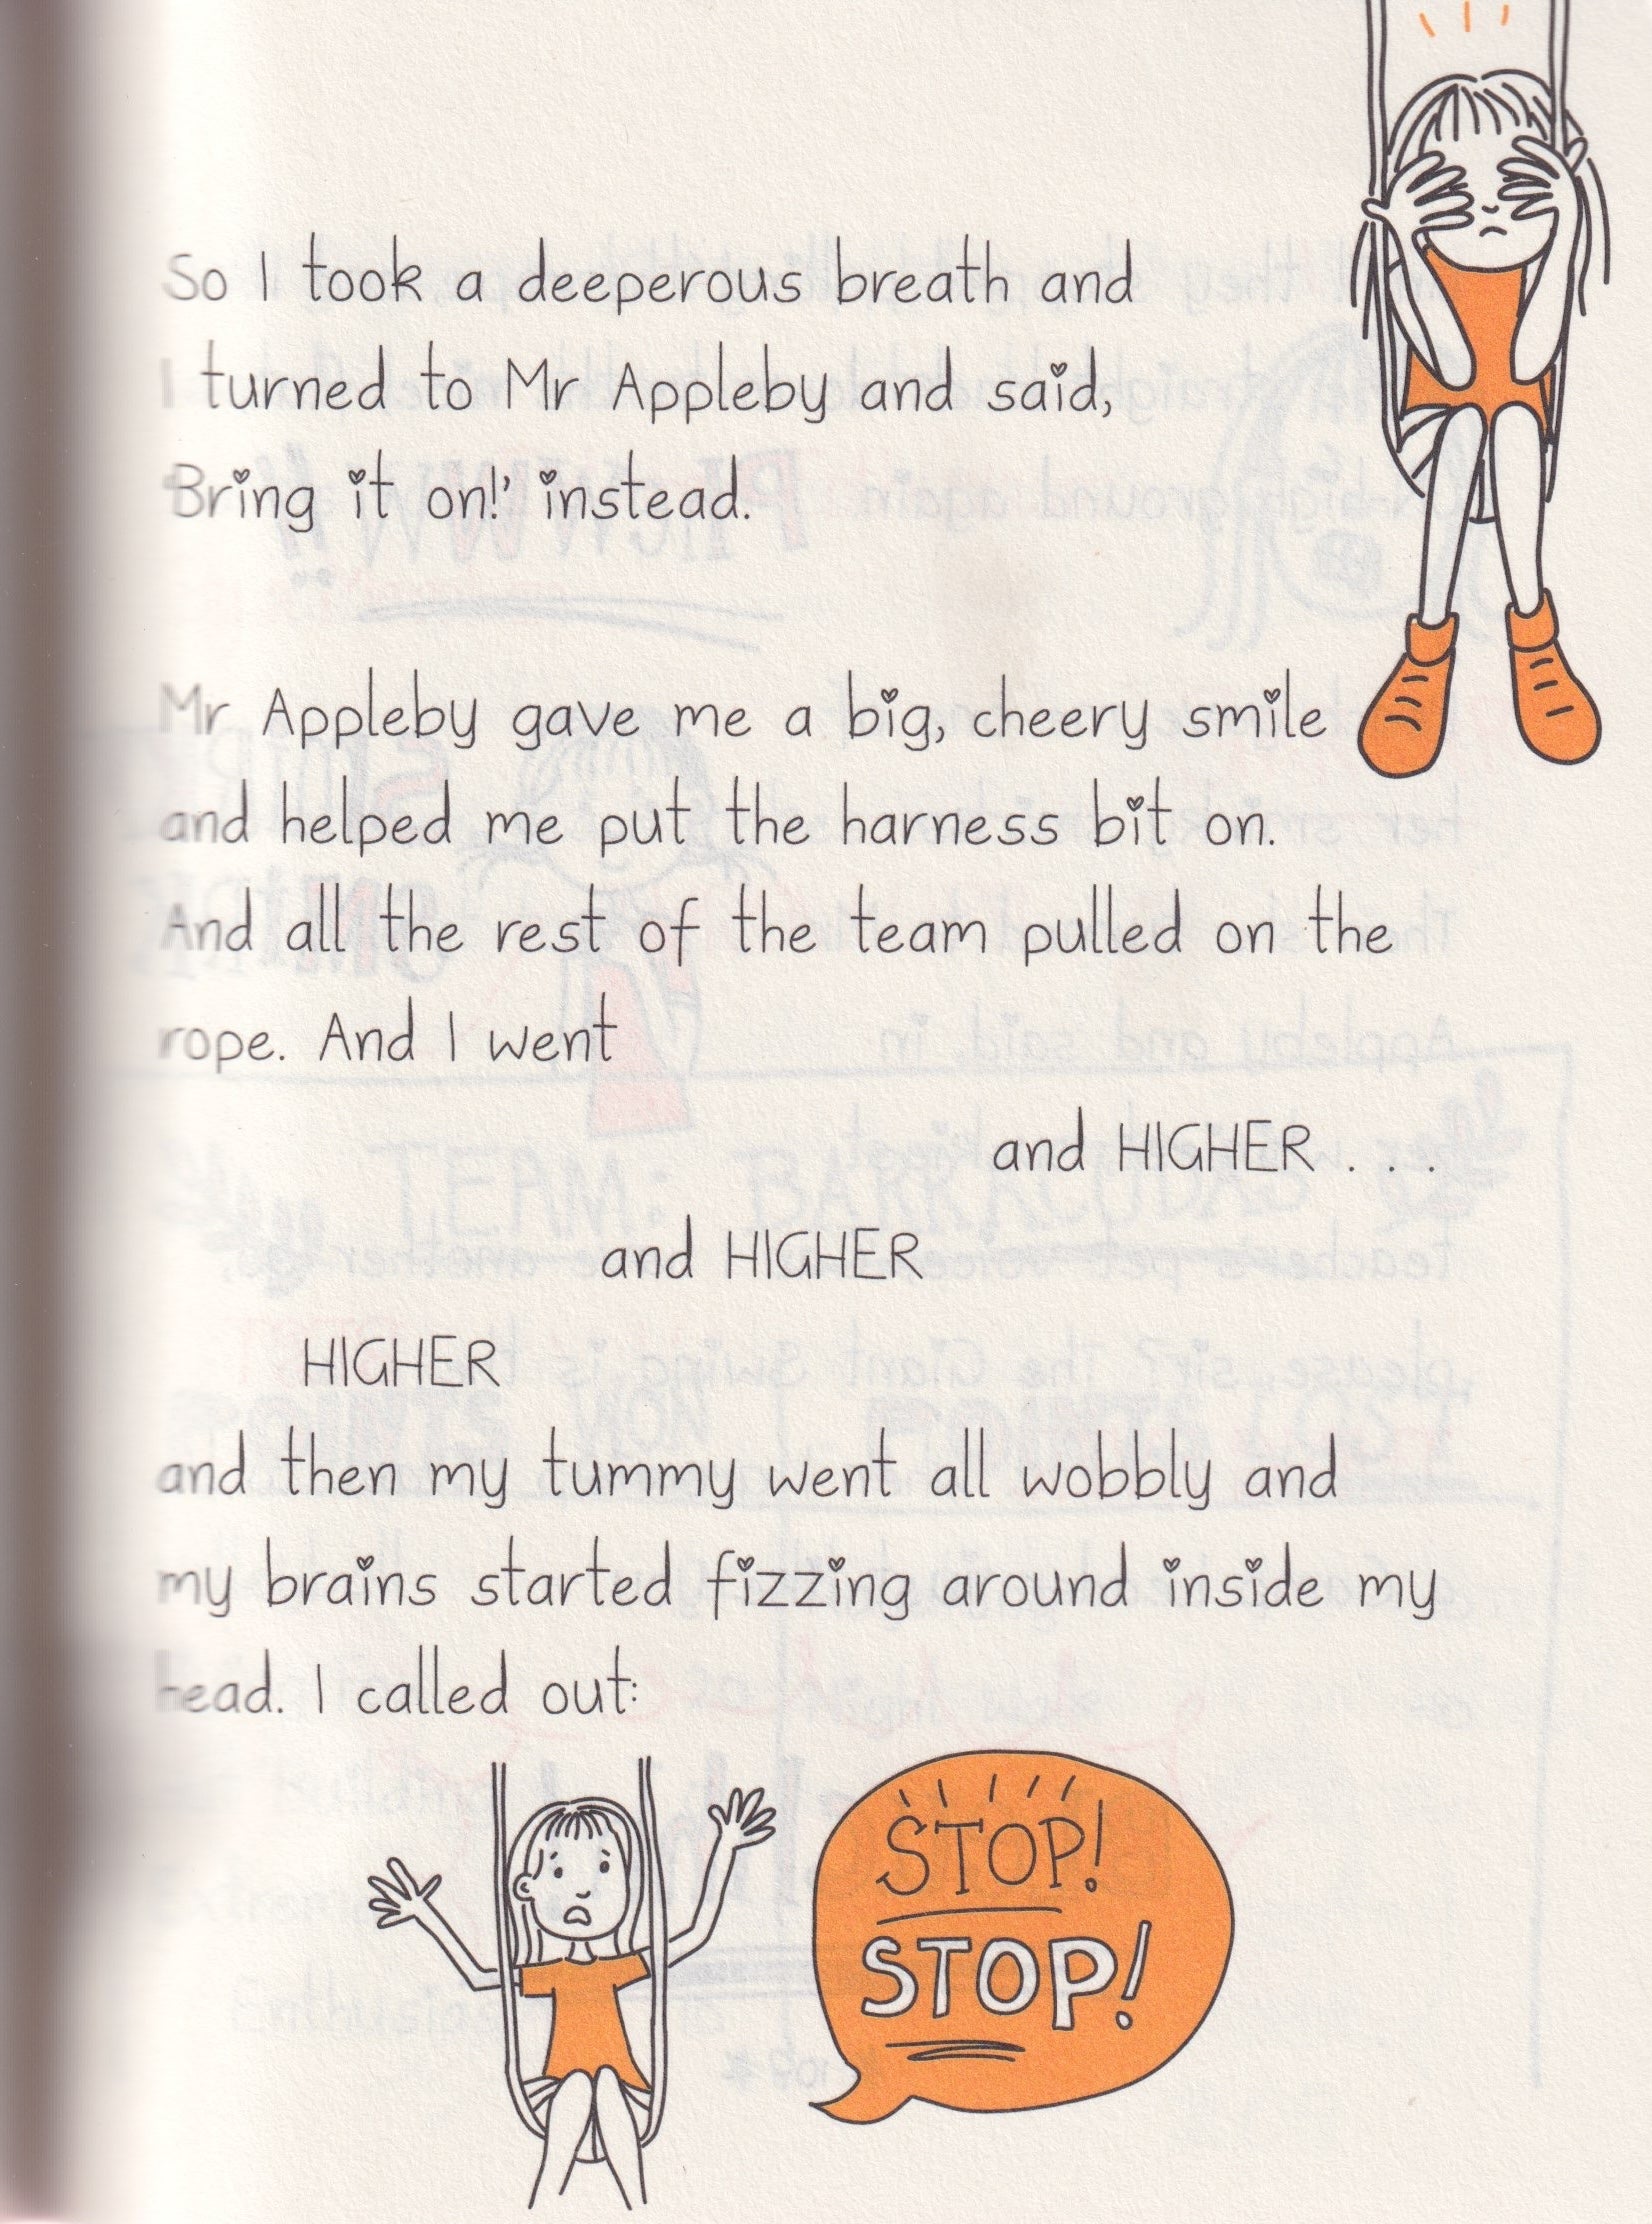 So I took a deeperous breath and
I turned to Mr Appleby and said,
'Bring it on!' instead.
Mr Appleby gave me a big, cheery smile
and helped me put the harness bit on.
And all the rest of the team pulled on the
rope. And I went
HIGHER
and HIGHER
and HIGHER . . .
and then my tummy went all wobbly and
my brains started fizzing around inside my
head. I called out:
STOP!
STOP!